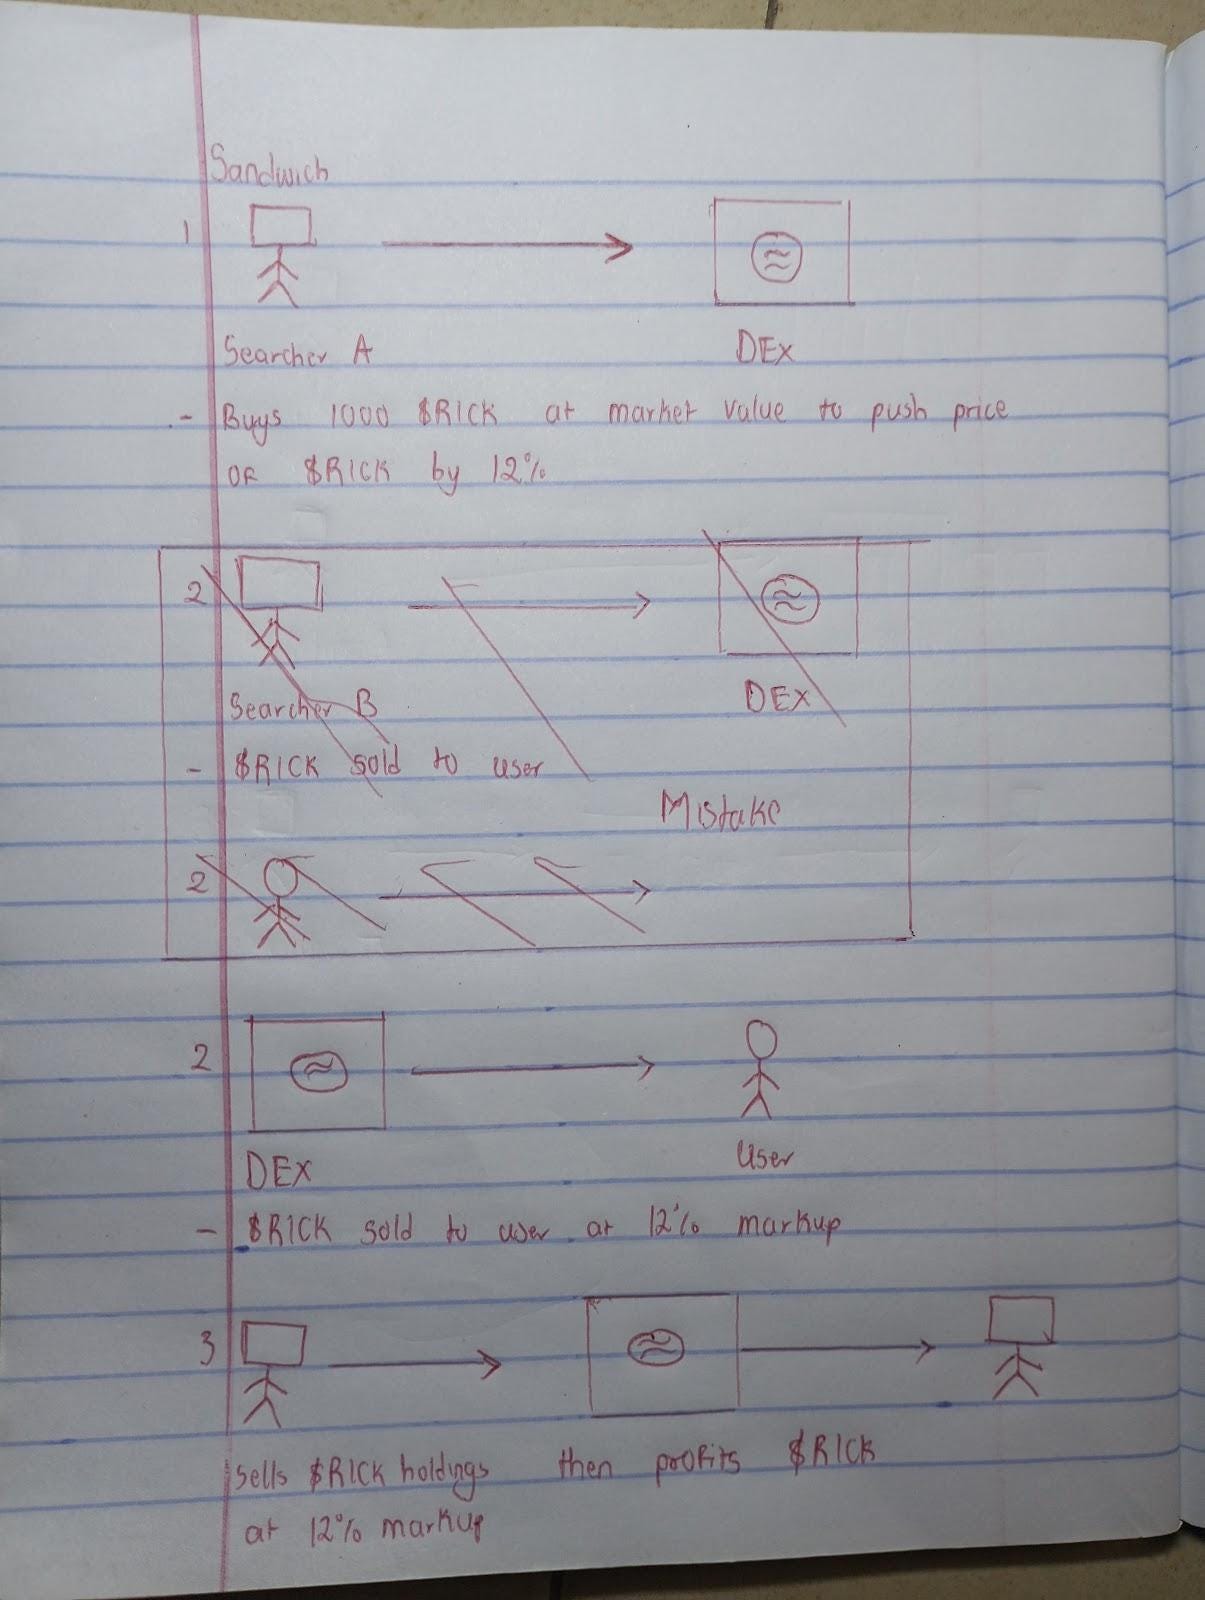 Sandwich
1
Searcher A DEX
- Buys 1000 $RICK at market value to push price
OF $RICK by 12%
2
Searcher B DEX
- $RICK sold to user
Mistake
2
2
DEX User
- $RICK sold to user at 12% markup
3
Sells $RICK holdings then profits $RICK
at 12% markup